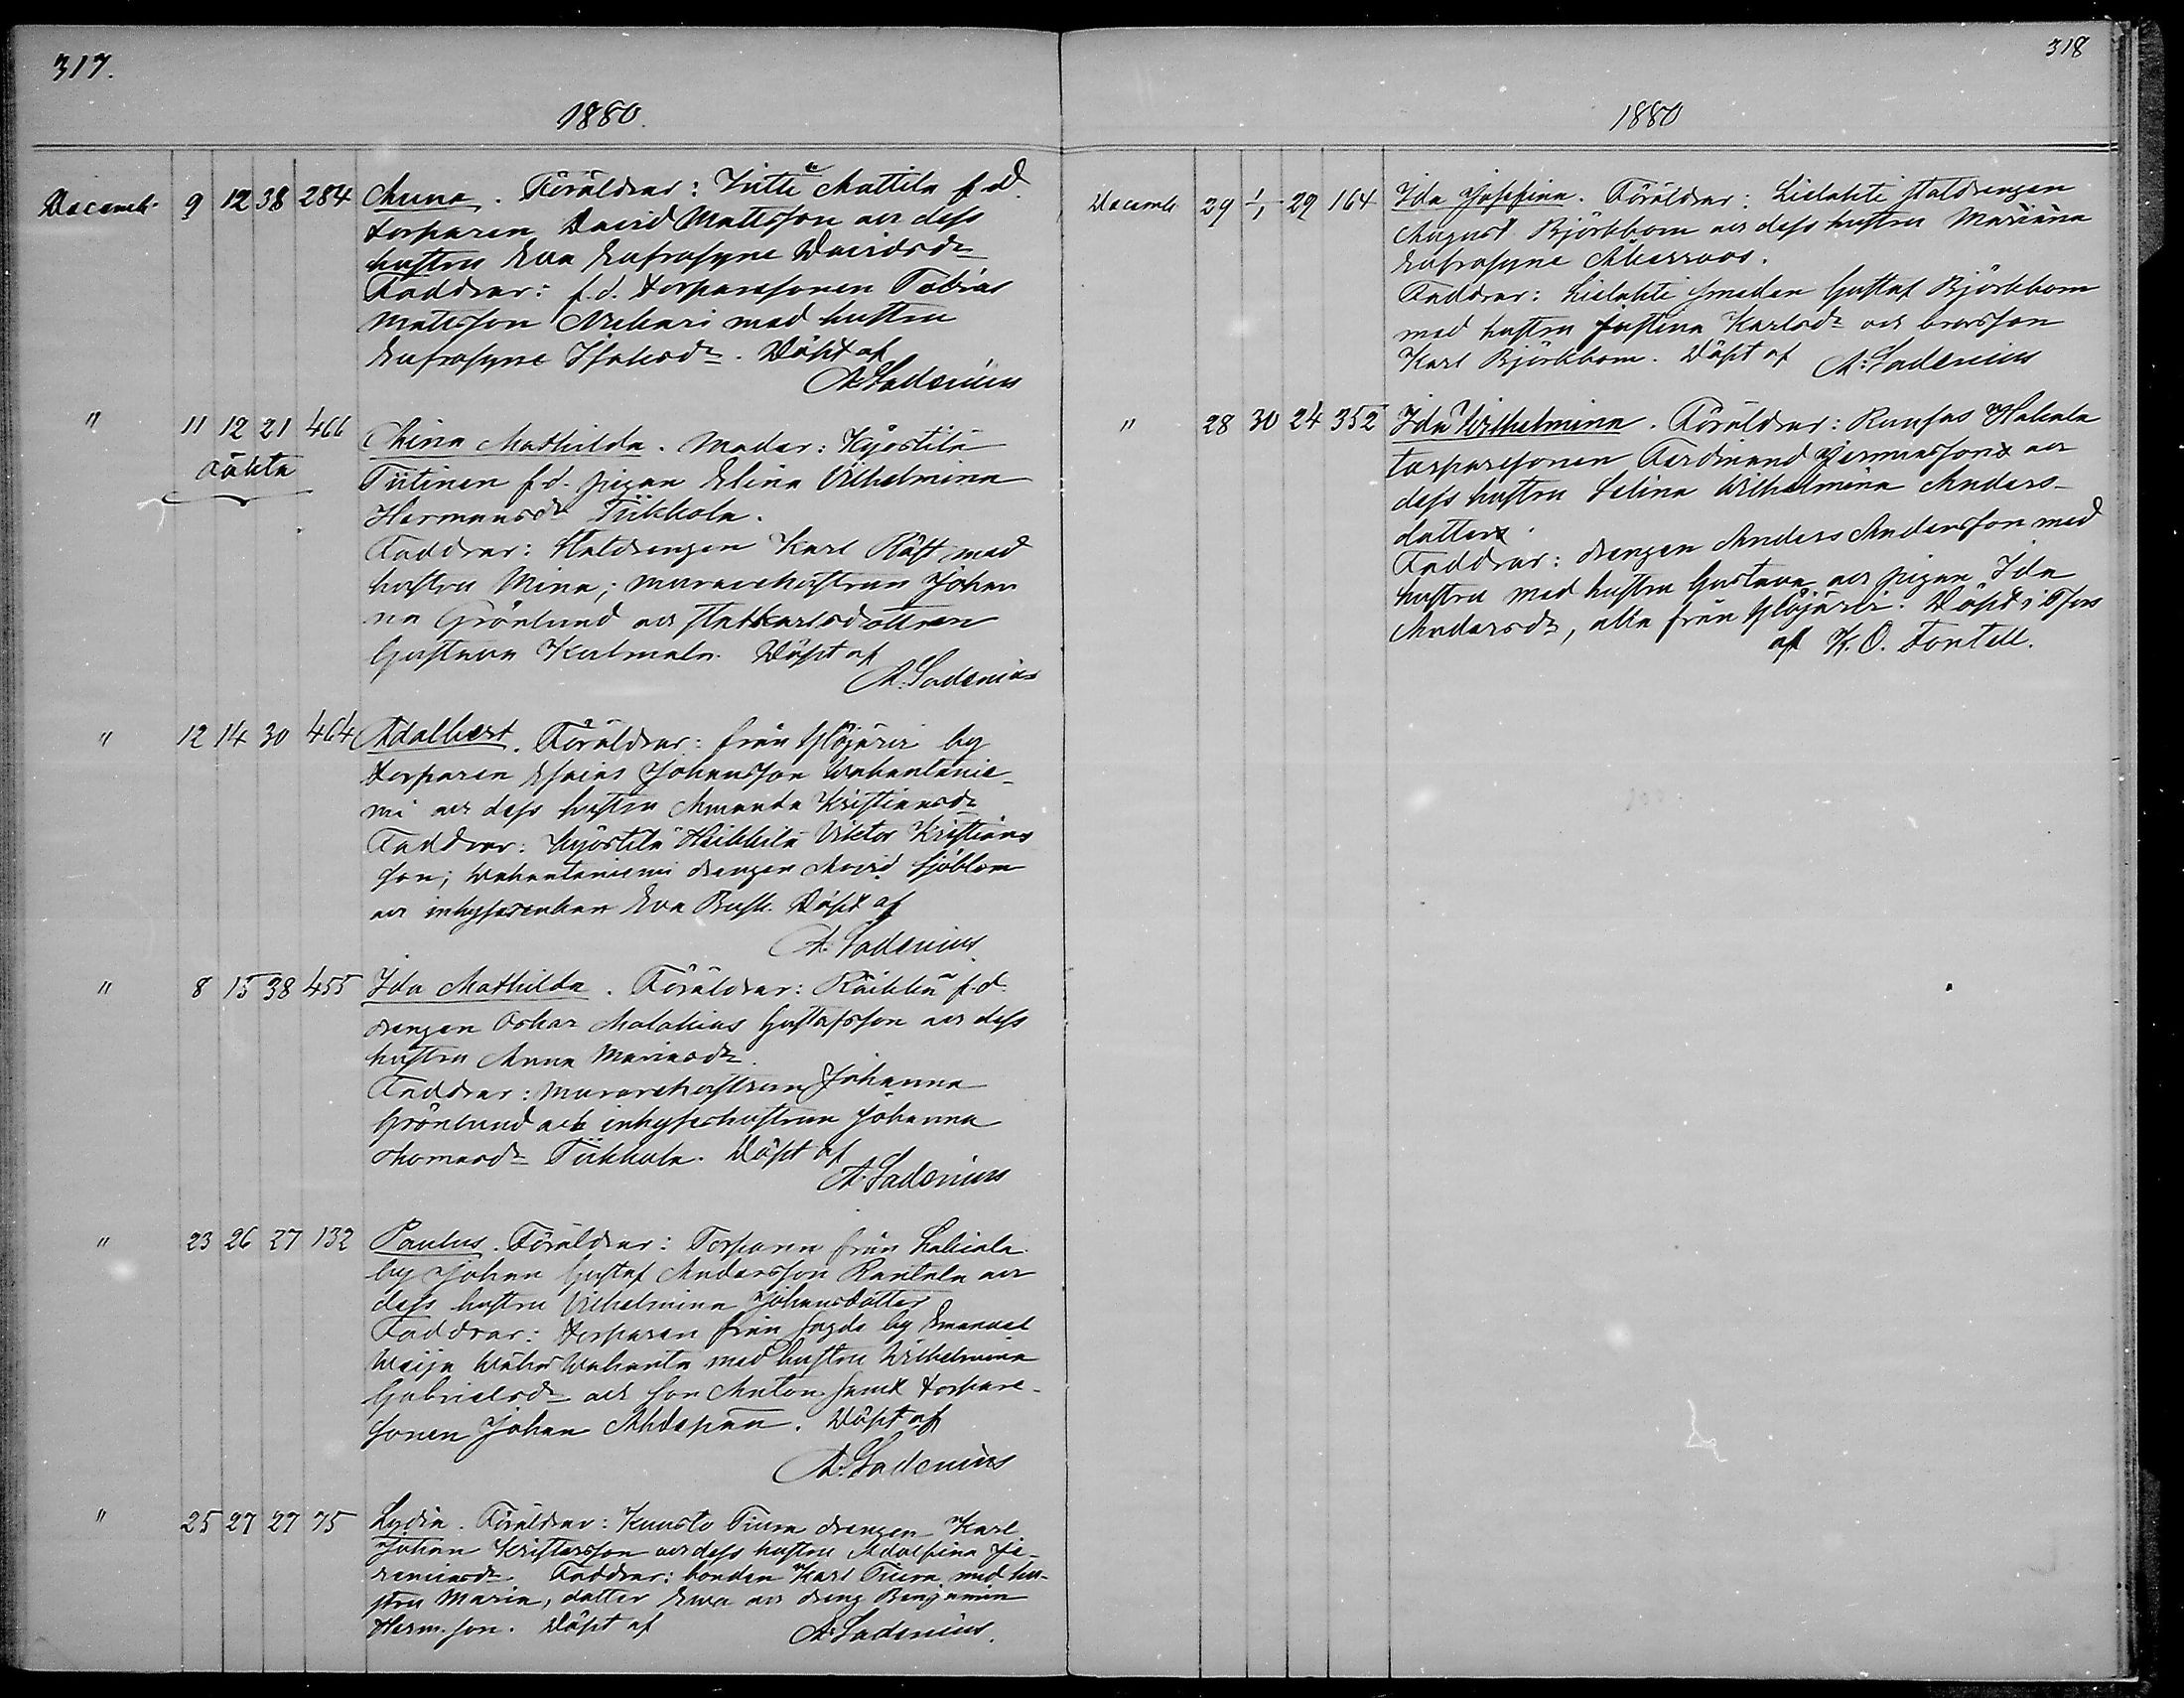 317.
1880.
Decemb. 9 12 38 284 Anna. Föräldrar: Mattila f.d.
torparen David Mattsson och dess
hustru Eva Eufrosyne Davidsdr
Faddrar: f.d. torparesonen Tobias
Mattsson med hustru
Eufrosyne Isaksdr. Döpt af
A. Ladenius
" 11 12 21 466 Mathilda. Moder: Kyöstilä
oäkta
Tiitinen f.d. pigan Elina Vilhelmina
Hermansdr Tükkola.
Faddrar: Statdrengen Karl Räft med
hustru Mina; murarehustrun Johan
na Grönlund och statkarlsdottren
Gustava Kulmala. Döpt af
A. Ladenius
" 12 14 30 464 Adalbert. Föräldrar: från Ylöjärvi by
torparen Esaias Johansson Vahantanie-
mi och dess hustru Amanda Kristiansdr
Faddrar: Kyöstilä Heikkilä Viktor Kristians
son; Vahantaniemi drengen David Sjöblom
och inhysesenkan Eva Busk. Döpt af
A. Ladenius
" 8 15 38 455 Ida Mathilda. Föräldrar: Räikkä f.d.
drengen Oskar Malakias Gustafsson och dess
hustru Anna Mariasdr.
Faddrar: Murarehustrun Johanna
Grönlund och inhyseshustrun Johanna
Thomasdr Tükkola. Döpt af
A. Ladenius
" 23 26 27 132 Paulus. Föräldrar: Torparen från Lakiala
by Johan Gustaf Andersson Rantala och
dess hustru Vilhelmina Johansdotter
Faddrar: torparen från by Emanuel
Wahanta med hustru Wilhelmina
Gabrielsdr och son Anton samt torpare-
sonen Johan Ahdepää. Döpt af
A. Ladenius
" 25 27 27 75 Lydia. Föräldrar: Kuusto Tiura drengen Karl
Johan Kristersson och dess hustru Adolfina Je-
remiasdr. Faddrar: bonden Karl Tiura med hu-
stru Maria, dotter Ewa och dreng Benjamin
Herm.son. Döpt af A. Ladenius.
318
1880
Decemb. 29 1/1 29 164 Ida Josefina. Föräldrar: Lielahti statdrengen
August Björkbom och dess hustru Mariana
Eufrosyne Åkerroos.
Faddrar: Lielahti smeden Gustaf Björkbom
med hustru Justina Karlsdr och brorson
Karl Björkbom. Döpt af A. Ladenius
" 28 30 24 352 Ida Wilhelmina. Föräldrar: Hakala
torparesonen Ferdinand Jeremiasson och
dess hustru Selina Wilhelmina Anders-
dotter.
Faddrar: drengen Anders Andersson med
hustru med hustru Gustava och pigan Ida
Andersdr, alla från Ylöjärvi. Döpt i T:fors
af K. O. Fontell.